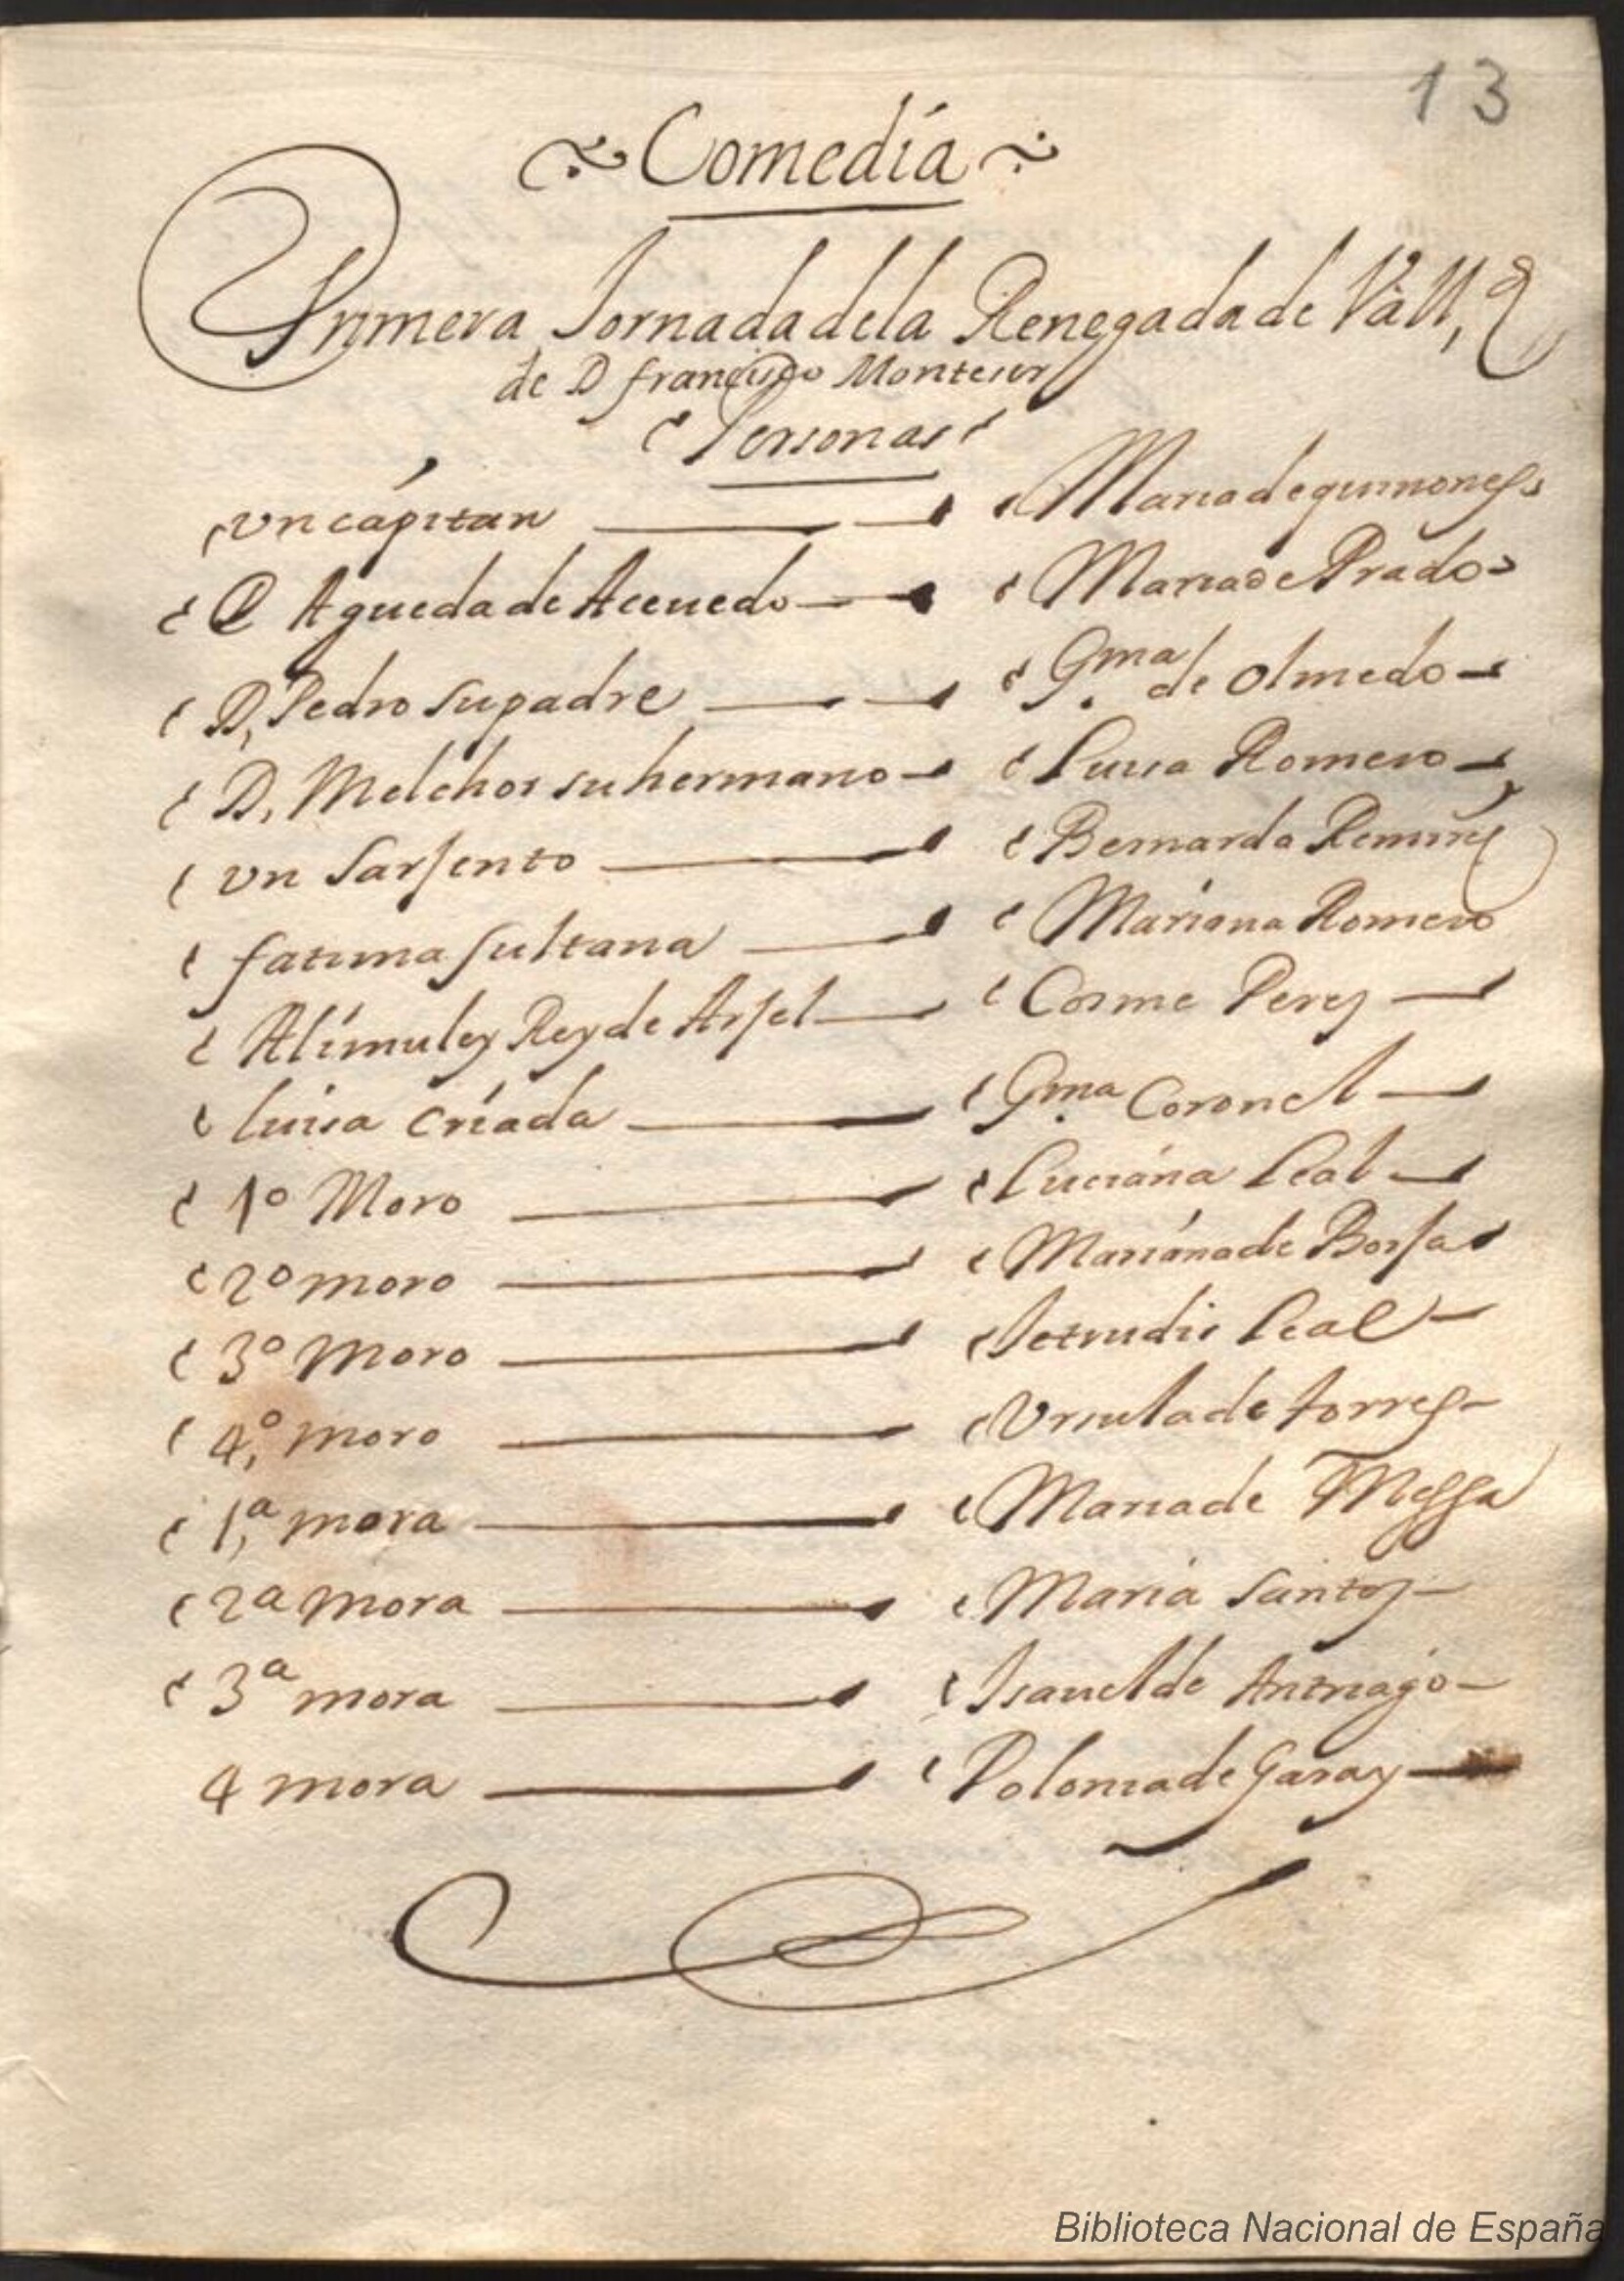 13
Comedia
Primera Jornada de la Renegada de Vall,
de D francisco Monteser
Personas
Un capitan — Maria de quiñones
D Agueda de Aceuedo — Maria de Prado
D, Pedro su padre — Gma. de Olmedo
D, Melchor su hermano — Luisa Romero
Un Sarjento — Bernarda Remirez
fatima Sultana — Mariana Romero
Alimuley Rey de Arjel — Cosme Perez
luisa criada — Gma. Coronel
1º Moro — Luciana Leal
2º moro — Mariana de Borja
3º Moro — Jetrudis Leal
4º moro — Ursula de torres
1ª mora — Maria de Messa
2ª mora — Maria Santos
3ª mora — Isauel de Antriago
4 mora — Polonia de Garay
Biblioteca Nacional de España